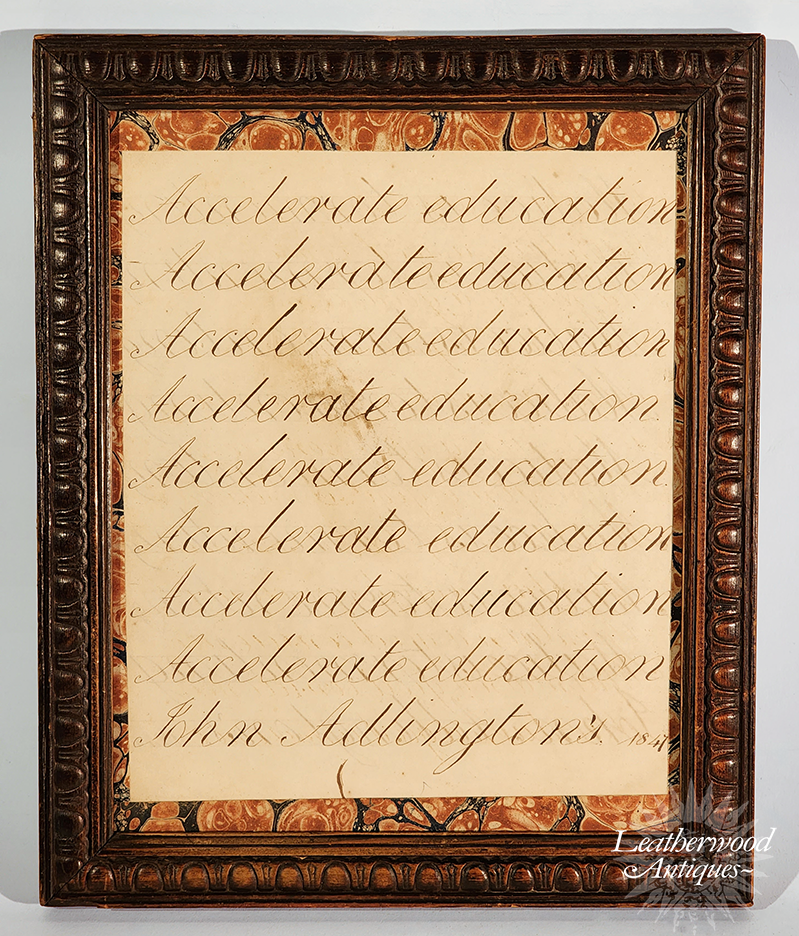 Accelerate education
Accelerate education
Accelerate education
Accelerate education.
Accelerate education.
Accelerate education
Accelerate education
Accelerate education
John Adlington's. 1847
Leatherwood
Antiques~